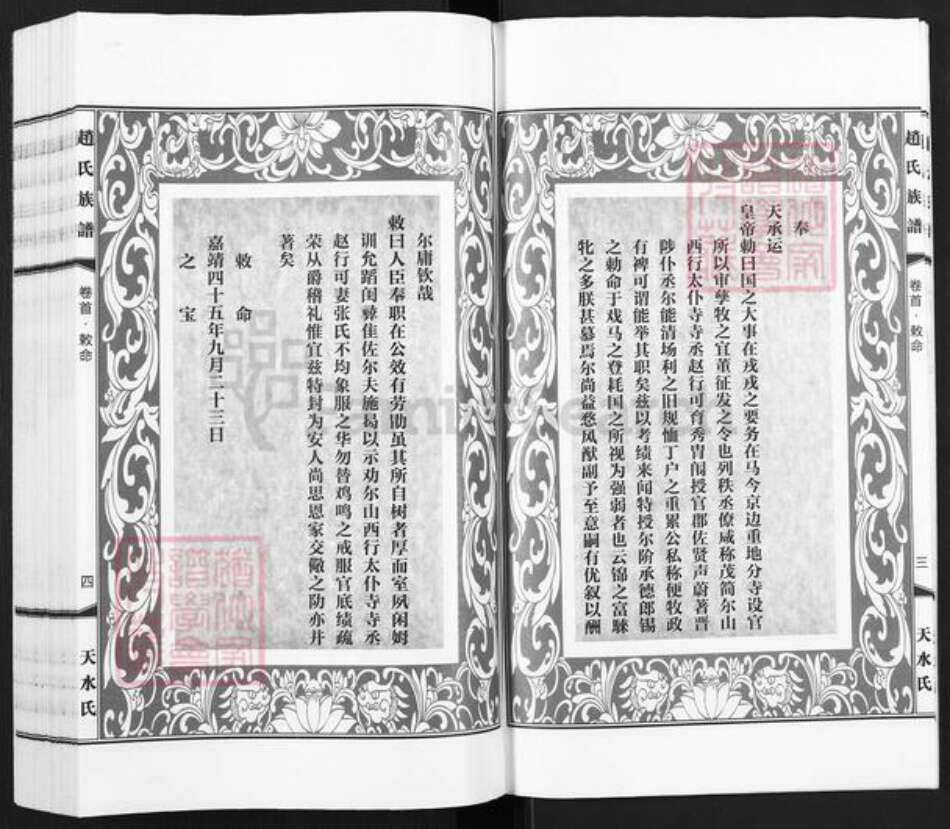 趙氏族譜
卷首·敕命
三
天水氏
奉
天承运
皇帝勅曰国之大事在戎戎之要务在马今京边重地分寺设官
所以审孳牧之宜董征发之令也列秩丞僚咸称茂简尔山
西行太仆寺寺丞赵行可育秀胄闻授官郡佐贤声蔚著晋
陟仆丞尔能清场利之旧规恤丁户之重累公私称便牧政
有裨可谓能举其职矣兹以考绩来闻特授尔阶承德郎锡
之勅命于戏马之登耗国之所视为强弱者也云锦之富騋
牝之多朕甚慕焉尔尚益愗风猷副予至意嗣有优叙以酬
尔庸钦哉
敕曰人臣奉职在公效有劳勋虽其所自树者厚而室夙闲姆
训允蹈闺彝隹佐尔夫施曷以示劝尔山西行太仆寺寺丞
赵行可妻张氏不均象服之华勿替鸡鸣之戒服官底绩疏
荣从爵稽礼惟宜兹特封为安人尚思恩家交儆之助亦并
著矣
敕命
嘉靖四十五年九月二十三日
之宝
趙氏族譜
卷首·敕命
四
天水氏